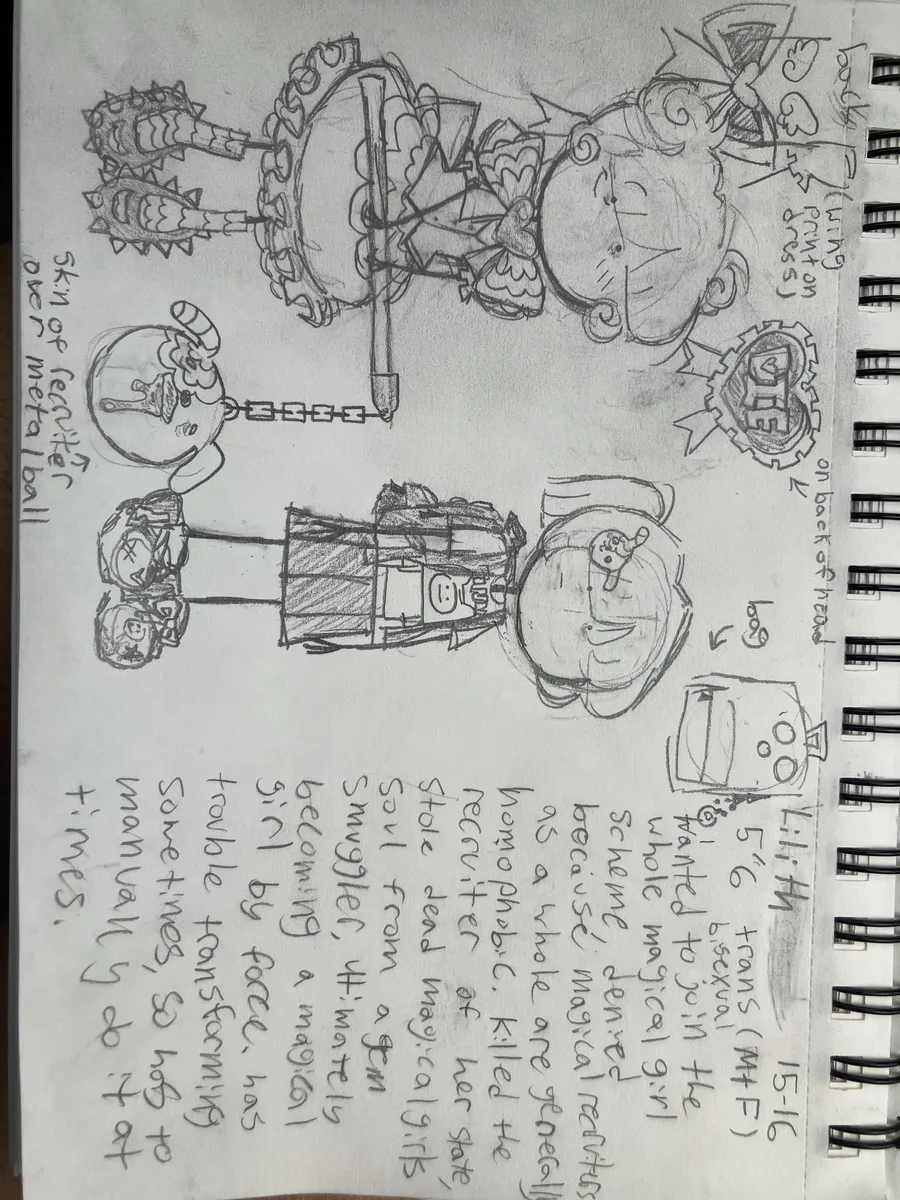 back
(wing
print on
dress)
DIE
on back of head
bag
skin of recruiter
over metal ball
Lilith 15-16
5"6 trans (MtF)
bisexual
wanted to join the
whole magical girl
scheme, denied
because magical recruiters
as a whole are generally
homophobic. killed the
recruiter of her state,
stole dead magical girls
soul from a gem
smuggler, ultimately
becoming a magical
girl by force. has
trouble transforming
sometimes, so has to
manually do it at
times.